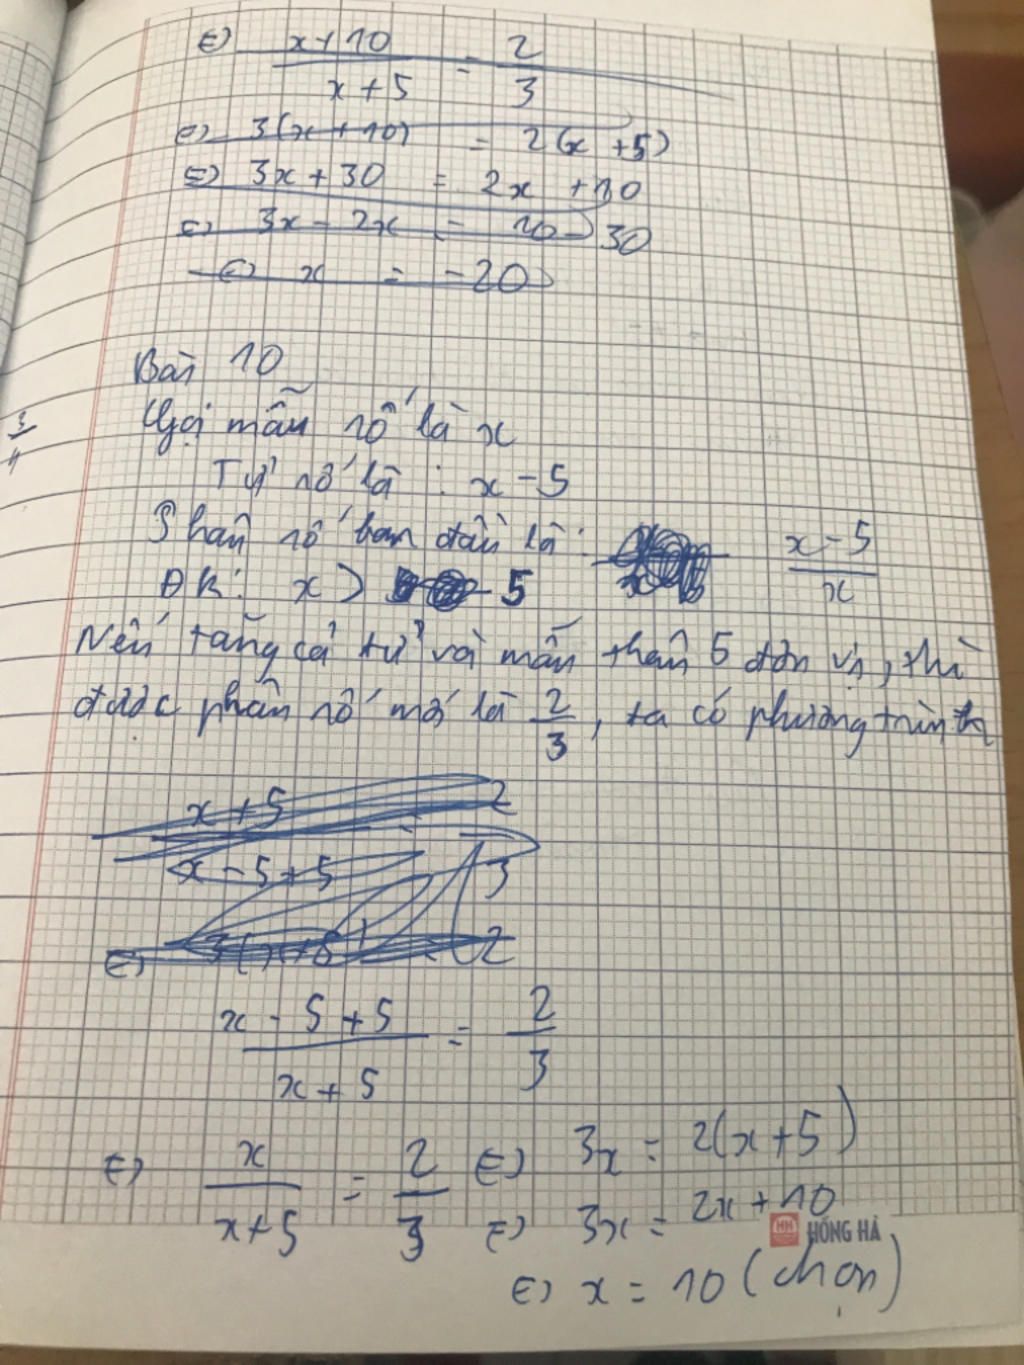 ⇔ x+10 / x+5 = 2/3
⇔ 3(x+10) = 2(x+5)
⇔ 3x+30 = 2x+10
⇔ 3x-2x = 10-30
⇔ x = -20
Bài 10
3/4
Gọi mẫu số là x
Tử số là: x-5
Phân số ban đầu là: x-5 / x
ĐK: x > 5
Nếu tăng cả tử và mẫu thân 5 đơn vị, thì
được phân số mới là 2/3, ta có phương trình
x+5 / x-5+5 = 2/3
⇔ 3(x+5) 2
x-5+5 / x+5 = 2/3
⇔ x / x+5 = 2/3 ⇔ 3x = 2(x+5)
⇔ 3x = 2x+10
HH HỒNG HÀ
⇔ x = 10 (chọn)